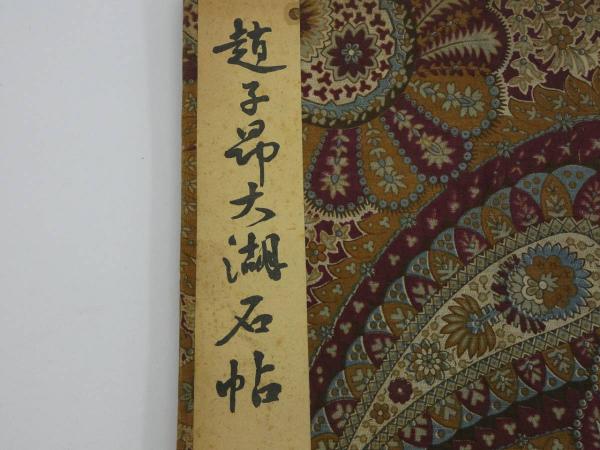 趙子昂大湖石帖